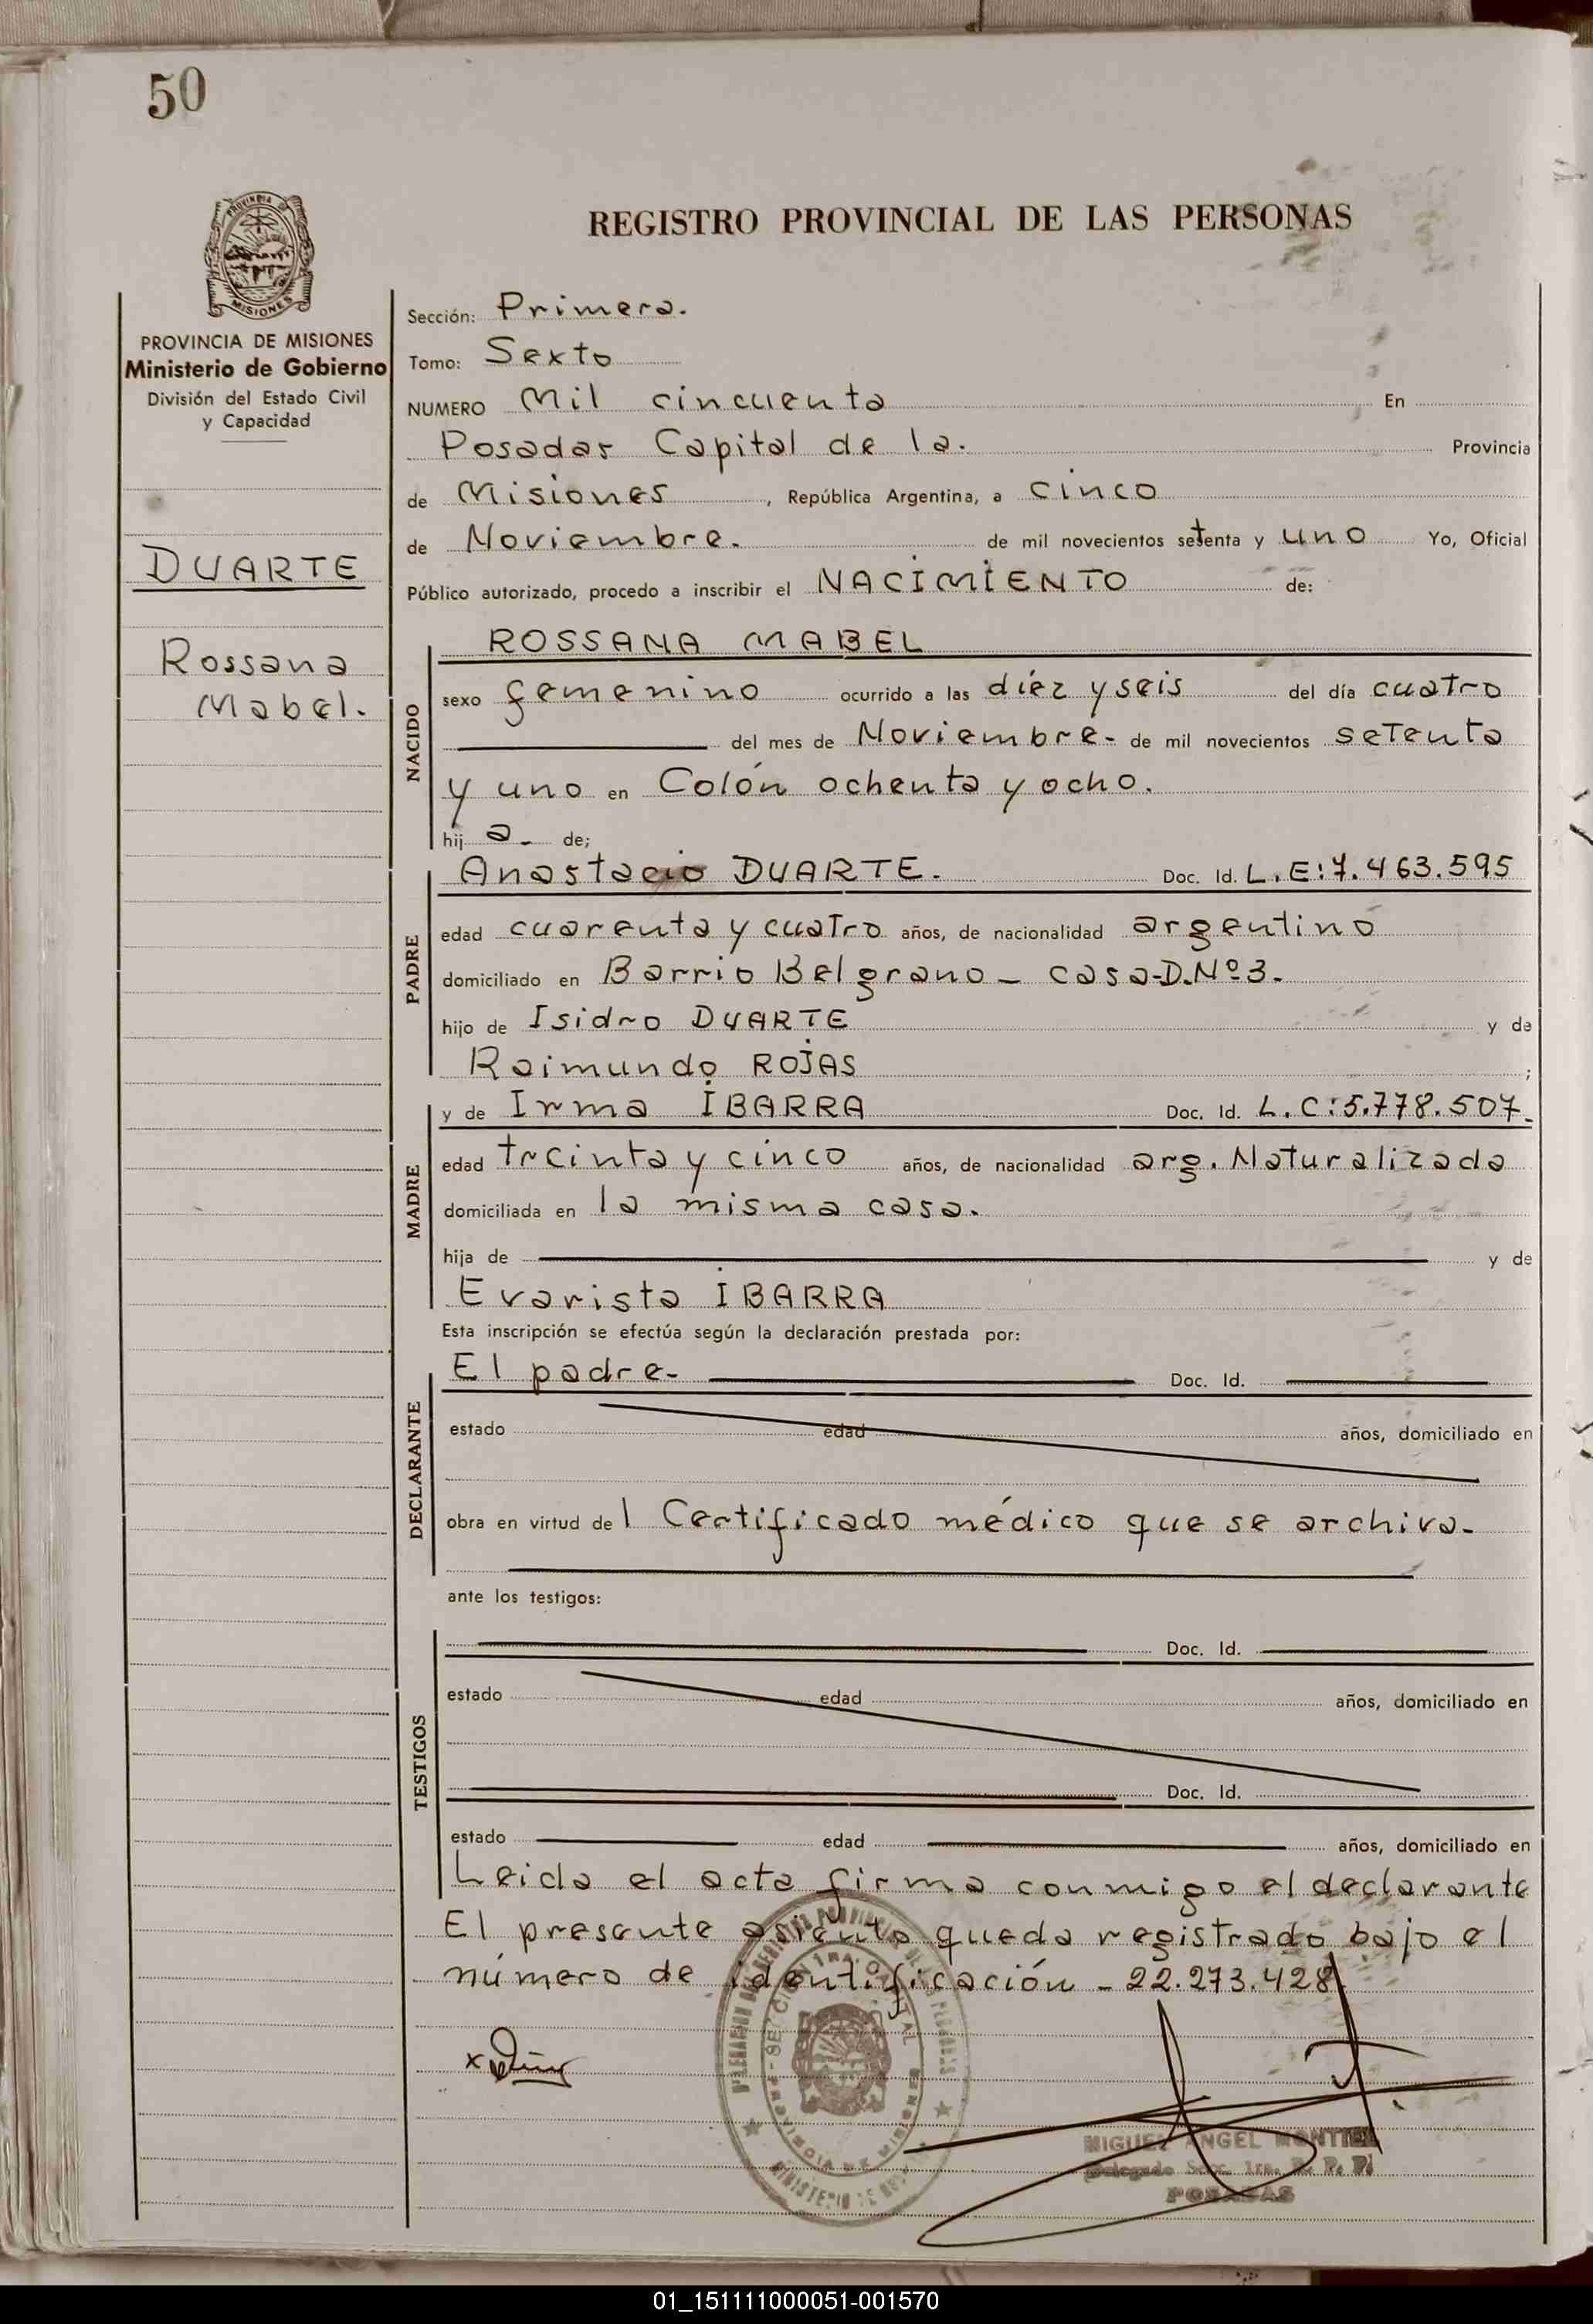 50
REGISTRO PROVINCIAL DE LAS PERSONAS
MISIONES
PROVINCIA DE MISIONES
Ministerio de Gobierno
División del Estado Civil
y Capacidad
DUARTE
Rossana
Mabel.
Sección: Primera.
Tomo: Sexto
NUMERO Mil cincuenta En
Posadas Capital de la. Provincia
de Misiones, República Argentina, a cinco
de Noviembre. de mil novecientos setenta y uno Yo, Oficial
Público autorizado, procedo a inscribir el NACIMIENTO de:
NACIDO
ROSSANA MABEL
sexo femenino ocurrido a las diez y seis del día cuatro
del mes de Noviembre- de mil novecientos setenta
y uno en Colón ochenta y ocho.
hij a. de;
PADRE
Anastacio DUARTE. Doc. Id. L.E:7.463.595
edad cuarenta y cuatro años, de nacionalidad argentino
domiciliado en Barrio Belgrano - casa-D.Nº3.
hijo de Isidro DUARTE y de
Raimunda ROJAS ;
MADRE
y de Irma IBARRA Doc. Id. L.C:5.778.507.
edad treinta y cinco años, de nacionalidad arg. Naturalizada
domiciliada en la misma casa.
hija de y de
Evarista IBARRA
Esta inscripción se efectúa según la declaración prestada por:
DECLARANTE
El padre- Doc. Id.
estado edad años, domiciliado en
obra en virtud del Certificado médico que se archiva-
ante los testigos:
TESTIGOS
Doc. Id.
estado edad años, domiciliado en
Doc. Id.
estado edad años, domiciliado en
Leida el acta firma conmigo el declarante
El presente asiento queda registrado bajo el
número de identificación - 22.273.428
MIGUEL ANGEL MONTIEL
Delegado Secc. 1ra. R. P. P.
POSADAS
01_151111000051-001570